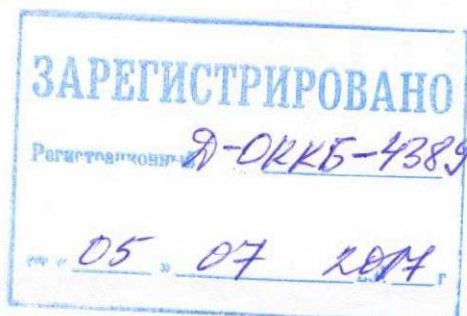 ЗАРЕГИСТРИРОВАНО
Регистрационный Д-ОККБ-4389
от « 05 » 07 2017 г